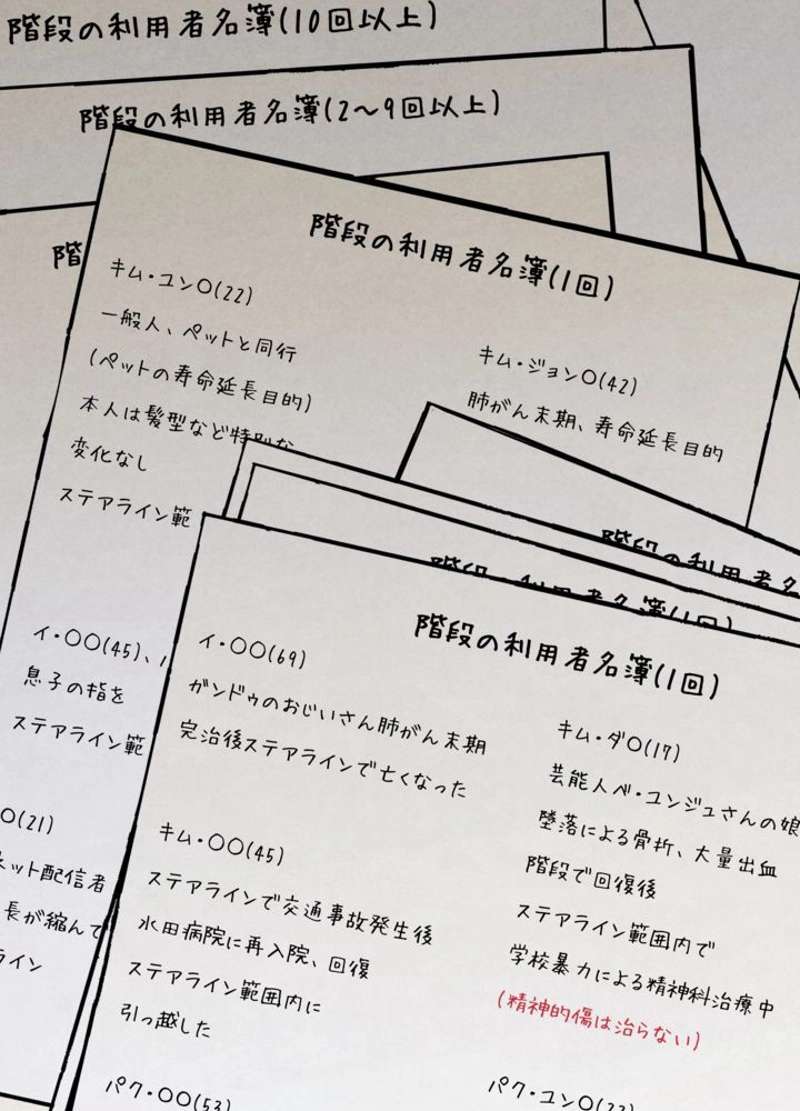 階段の利用者名簿(10回以上)
階段の利用者名簿(2〜9回以上)
階段の利用者名簿(1回)
キム・ユン〇(22)
一般人、ペットと同行
(ペットの寿命延長目的)
本人は髪型など特別な
変化なし
ステアライン範
キム・ジョン〇(42)
肺がん末期、寿命延長目的
階
イ・〇〇(45)、
息子の指を
ステアライン範
〇(21)
ネット配信者
長が縮んで
ライン
階段の利用者名
階段の利用者名簿(1回)
階段の利用者名簿(1回)
イ・〇〇(69)
ガンドゥのおじいさん肺がん末期
完治後ステアラインで亡くなった
キム・〇〇(45)
ステアラインで交通事故発生後
水田病院に再入院、回復
ステアライン範囲内に
引っ越した
パク・〇〇(53)
キム・ダ〇(17)
芸能人ペ・ユンジュさんの娘
墜落による骨折、大量出血
階段で回復後
ステアライン範囲内で
学校暴力による精神科治療中
(精神的傷は治らない)
パク・ユン〇(22)